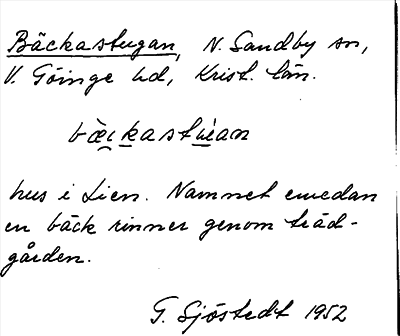 Bäckastugan, N. Sandby sn,
V. Göinge hd, Krist. län.
bæ̀ckastu̇an
hus i Lien. Namnet emedan
en bäck rinner genom träd-
gården.
G. Sjöstedt 1952